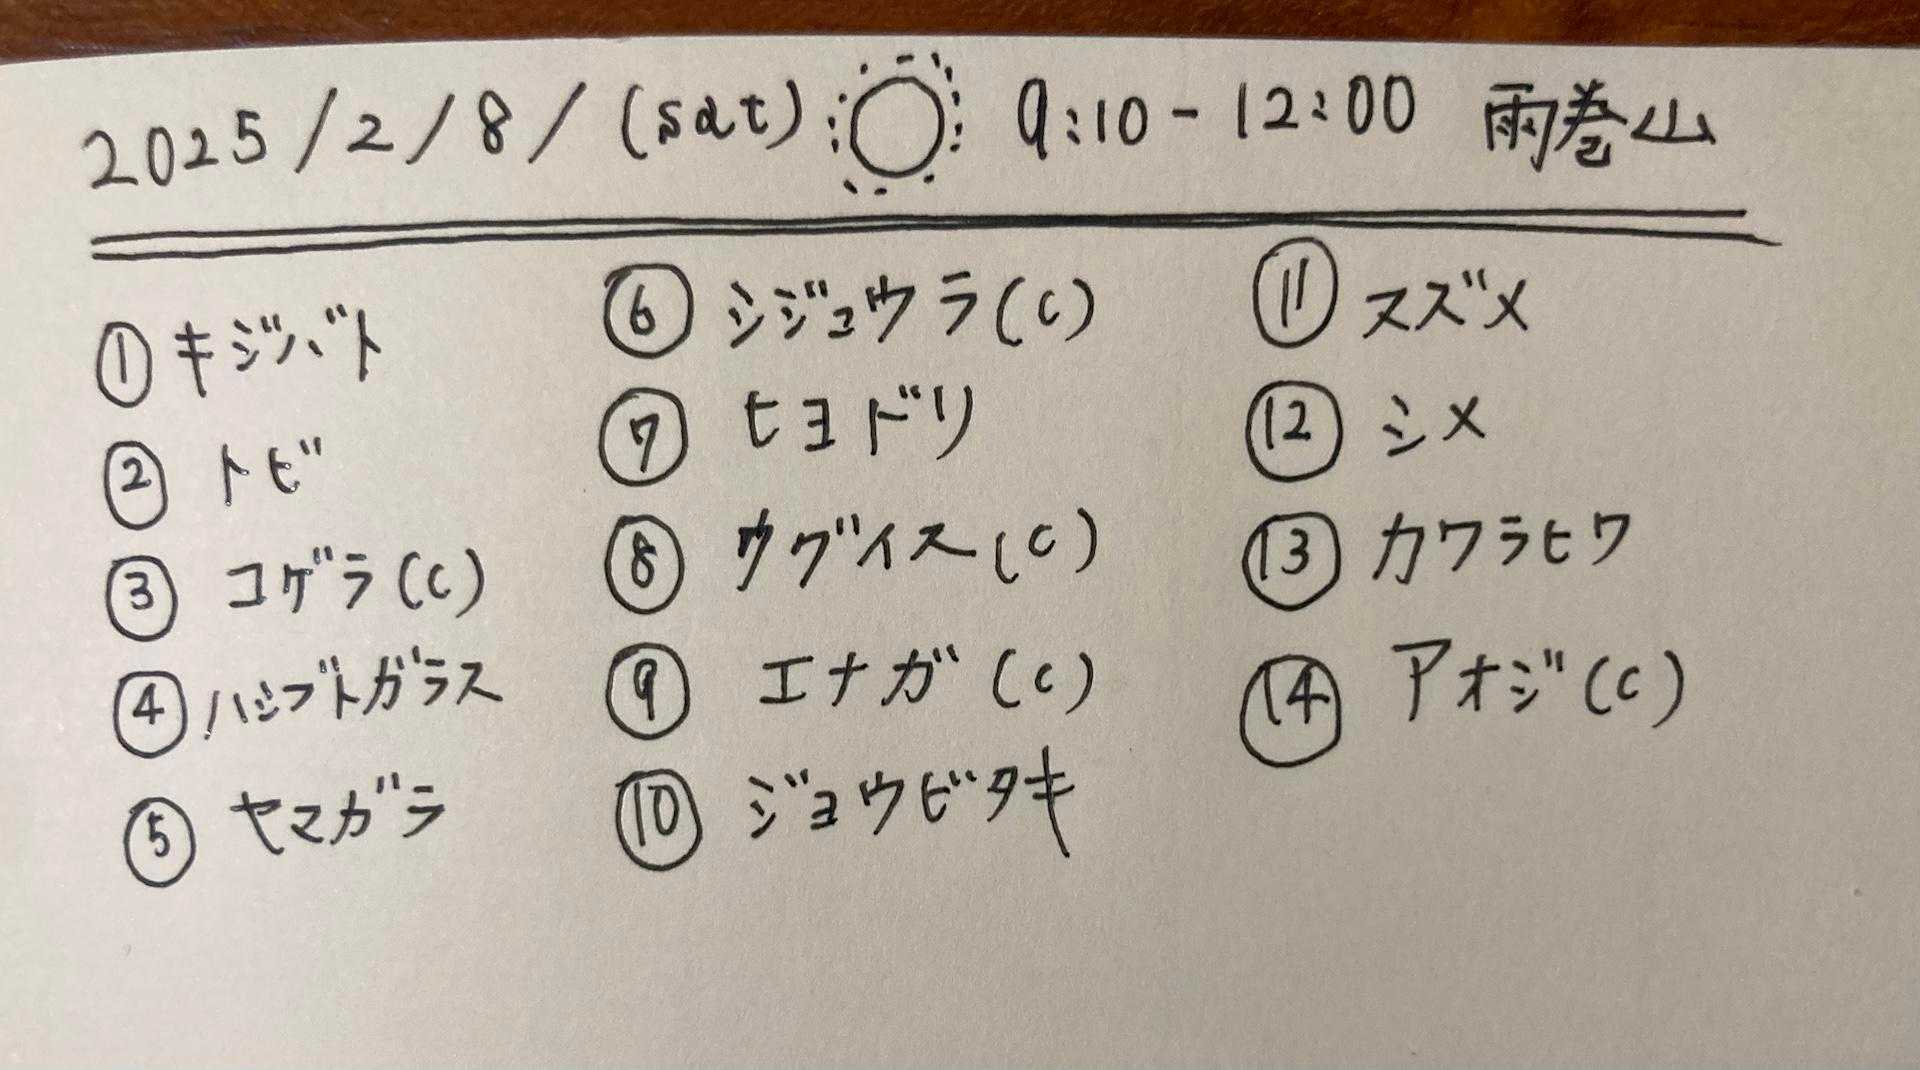 2025/2/8/(sat) 9:10-12:00 雨巻山
① キジバト
② トビ
③ コゲラ(C)
④ ハシブトガラス
⑤ ヤマガラ
⑥ シジュウラ(C)
⑦ ヒヨドリ
⑧ ウグイス(C)
⑨ エナガ(C)
⑩ ジョウビタキ
⑪ スズメ
⑫ シメ
⑬ カワラヒワ
⑭ アオジ(C)